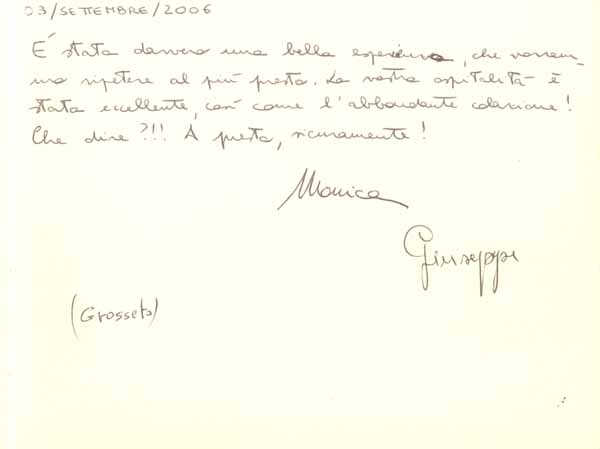 03/SETTEMBRE/2006
É stata davvero una bella esperienza, che vorrem-
mo ripetere al più presto. La vostra ospitalità è
stata eccellente, così come l'abbondante colazione!
Che dire?!!! A presto, sicuramente!
Monica
Giuseppe
(Grosseto)